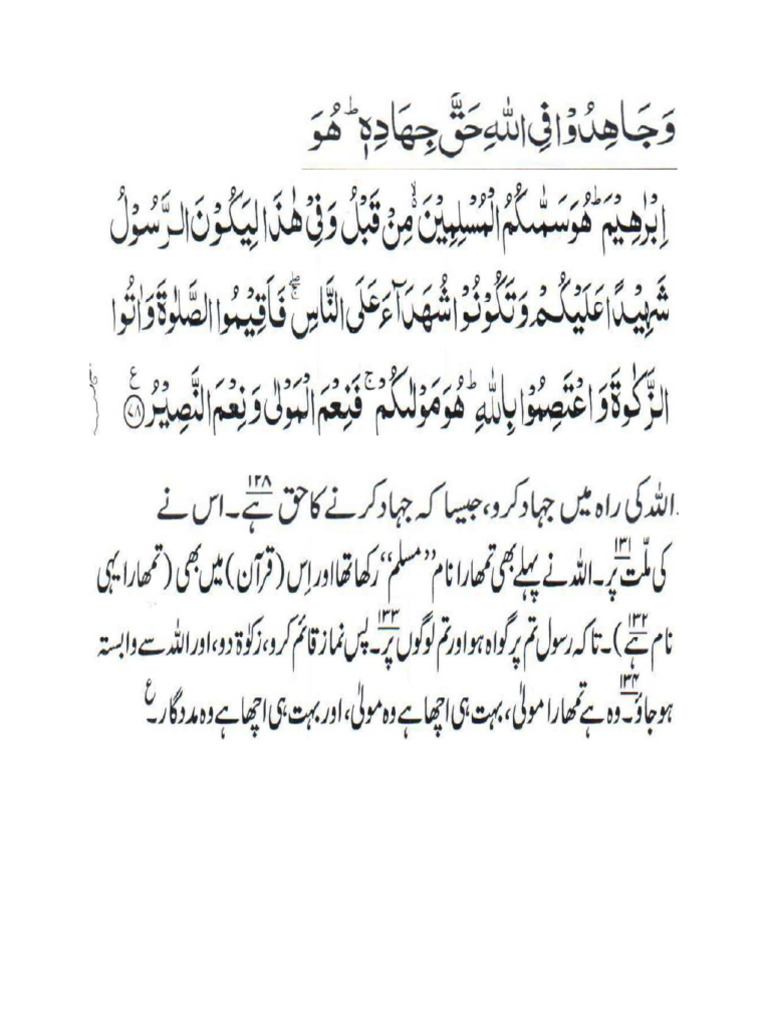 وَجَاهِدُوْا فِى اللّٰهِ حَقَّ جِهَادِهٖ ؕ هُوَ
اِبْرٰهِيْمَ ؕ هُوَ سَمّٰىكُمُ الْمُسْلِمِيْنَ ۙ۬ مِنْ قَبْلُ وَفِىْ هٰذَا لِيَكُوْنَ الرَّسُوْلُ
شَهِيْدًا عَلَيْكُمْ وَتَكُوْنُوْا شُهَدَآءَ عَلَى النَّاسِ ۖۚ فَاَقِيْمُوا الصَّلٰوةَ وَاٰتُوا
الزَّكٰوةَ وَاعْتَصِمُوْا بِاللّٰهِ ؕ هُوَ مَوْلٰىكُمْ ۚ فَنِعْمَ الْمَوْلٰى وَنِعْمَ النَّصِيْرُ ﴿۷۸﴾ ع
اللہ کی راہ میں جہاد کرو، جیسا کہ جہاد کرنے کا حق ہے۱۲۸۔ اس نے
کی ملّت پر۱۳۱۔ اللہ نے پہلے بھی تمھارا نام ”مسلم“ رکھا تھا اور اِس (قرآن) میں بھی (تمھارا یہی
نام ہے۱۳۲)۔ تاکہ رسول تم پر گواہ ہو اور تم لوگوں پر۱۳۳۔ پس نماز قائم کرو، زکوٰۃ دو، اور اللہ سے وابستہ
ہو جاؤ۱۳۴۔ وہ ہے تمھارا مولیٰ، بہت ہی اچھا ہے وہ مولیٰ، اور بہت ہی اچھا ہے وہ مددگار۔ ع